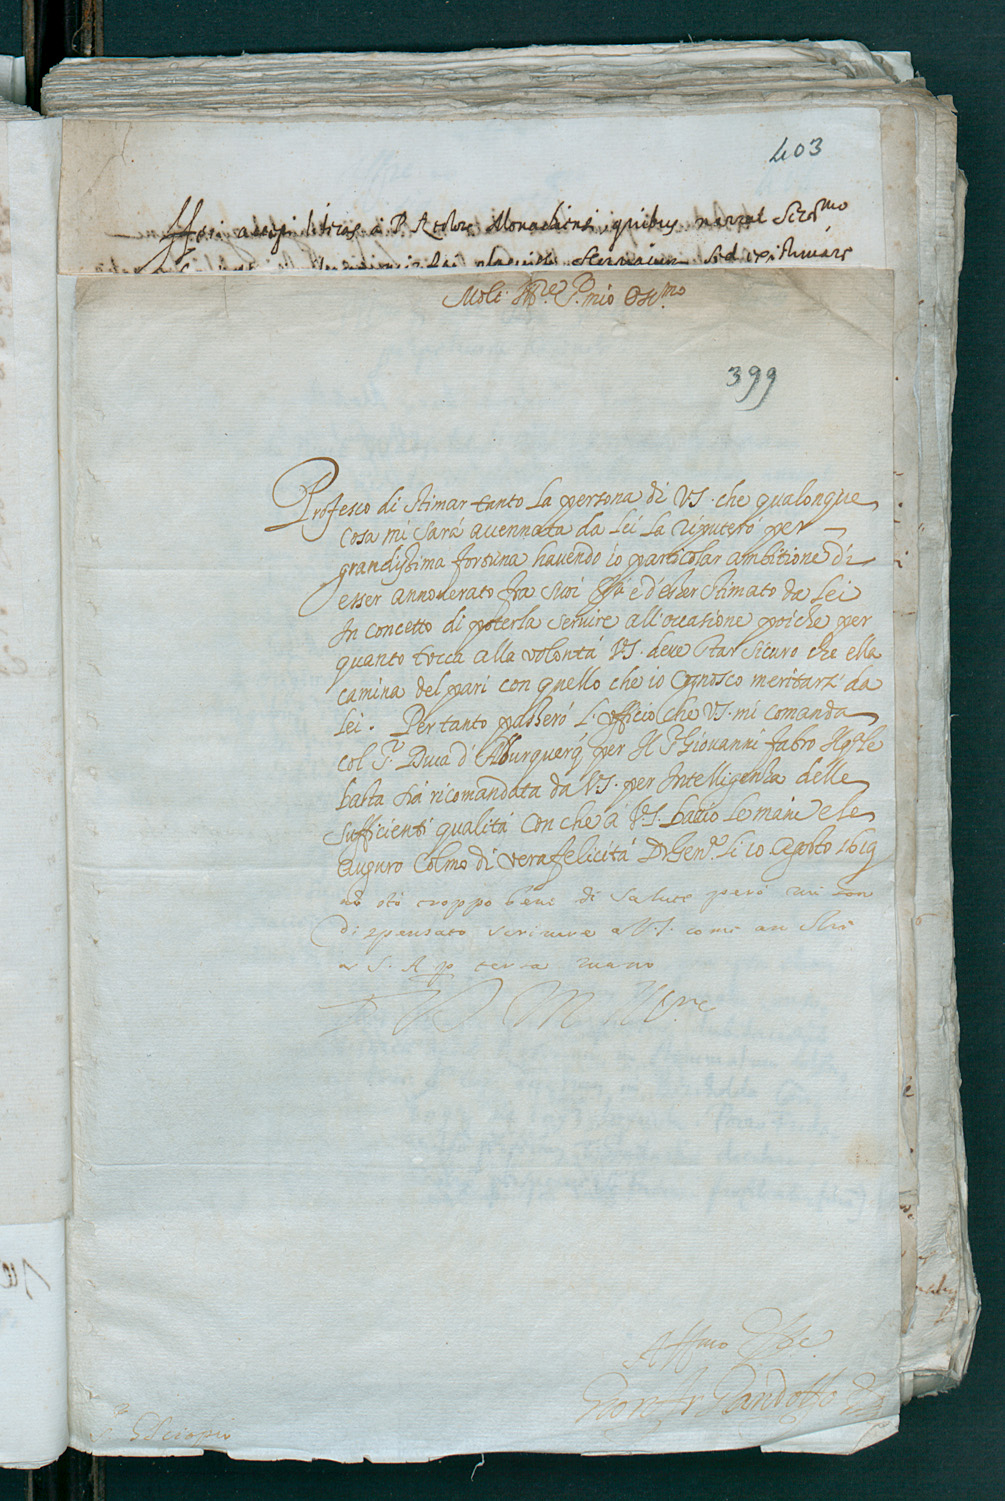 403
accepi literas à P. Rectore Monachiensi, quibus narrat Ser.mo
placuisse sed existimare
Molt' Ill.re S.r mio Oss.mo
399
Professo di stimar tanto la persona di VS. che qualonque
cosa mi sará accennata da Lei la riputeró per
grandissima fortuna havendo io particolar ambitione di
esser annoverato fra suoi e d'esser stimato da Lei
In concetto di poterla servire all'occasione poiche per
quanto tocca alla volontá VS. deve star sicuro che ella
camina del pari con quello che io Cognosco meritarsi da
Lei. Per tanto passeró L'ufficio che VS. mi comanda
col S.r Duca d'Alburquerq per Il S.r Giovanni Fabro
basta sia ricomandata da VS. per Intelligenza delle
sufficienti qualitá Con che á VS. bacio le mani e le
Auguro Colmo di vera felicitá Di Gen.a li 10 Agosto 1619
nó stó troppo bene di salute peró mi son
dispensato scrivere a V.S. come an
a S. A. p terza mano
D V S M Ill.re
Aff.mo
Gandolfo
S.r Scioppio